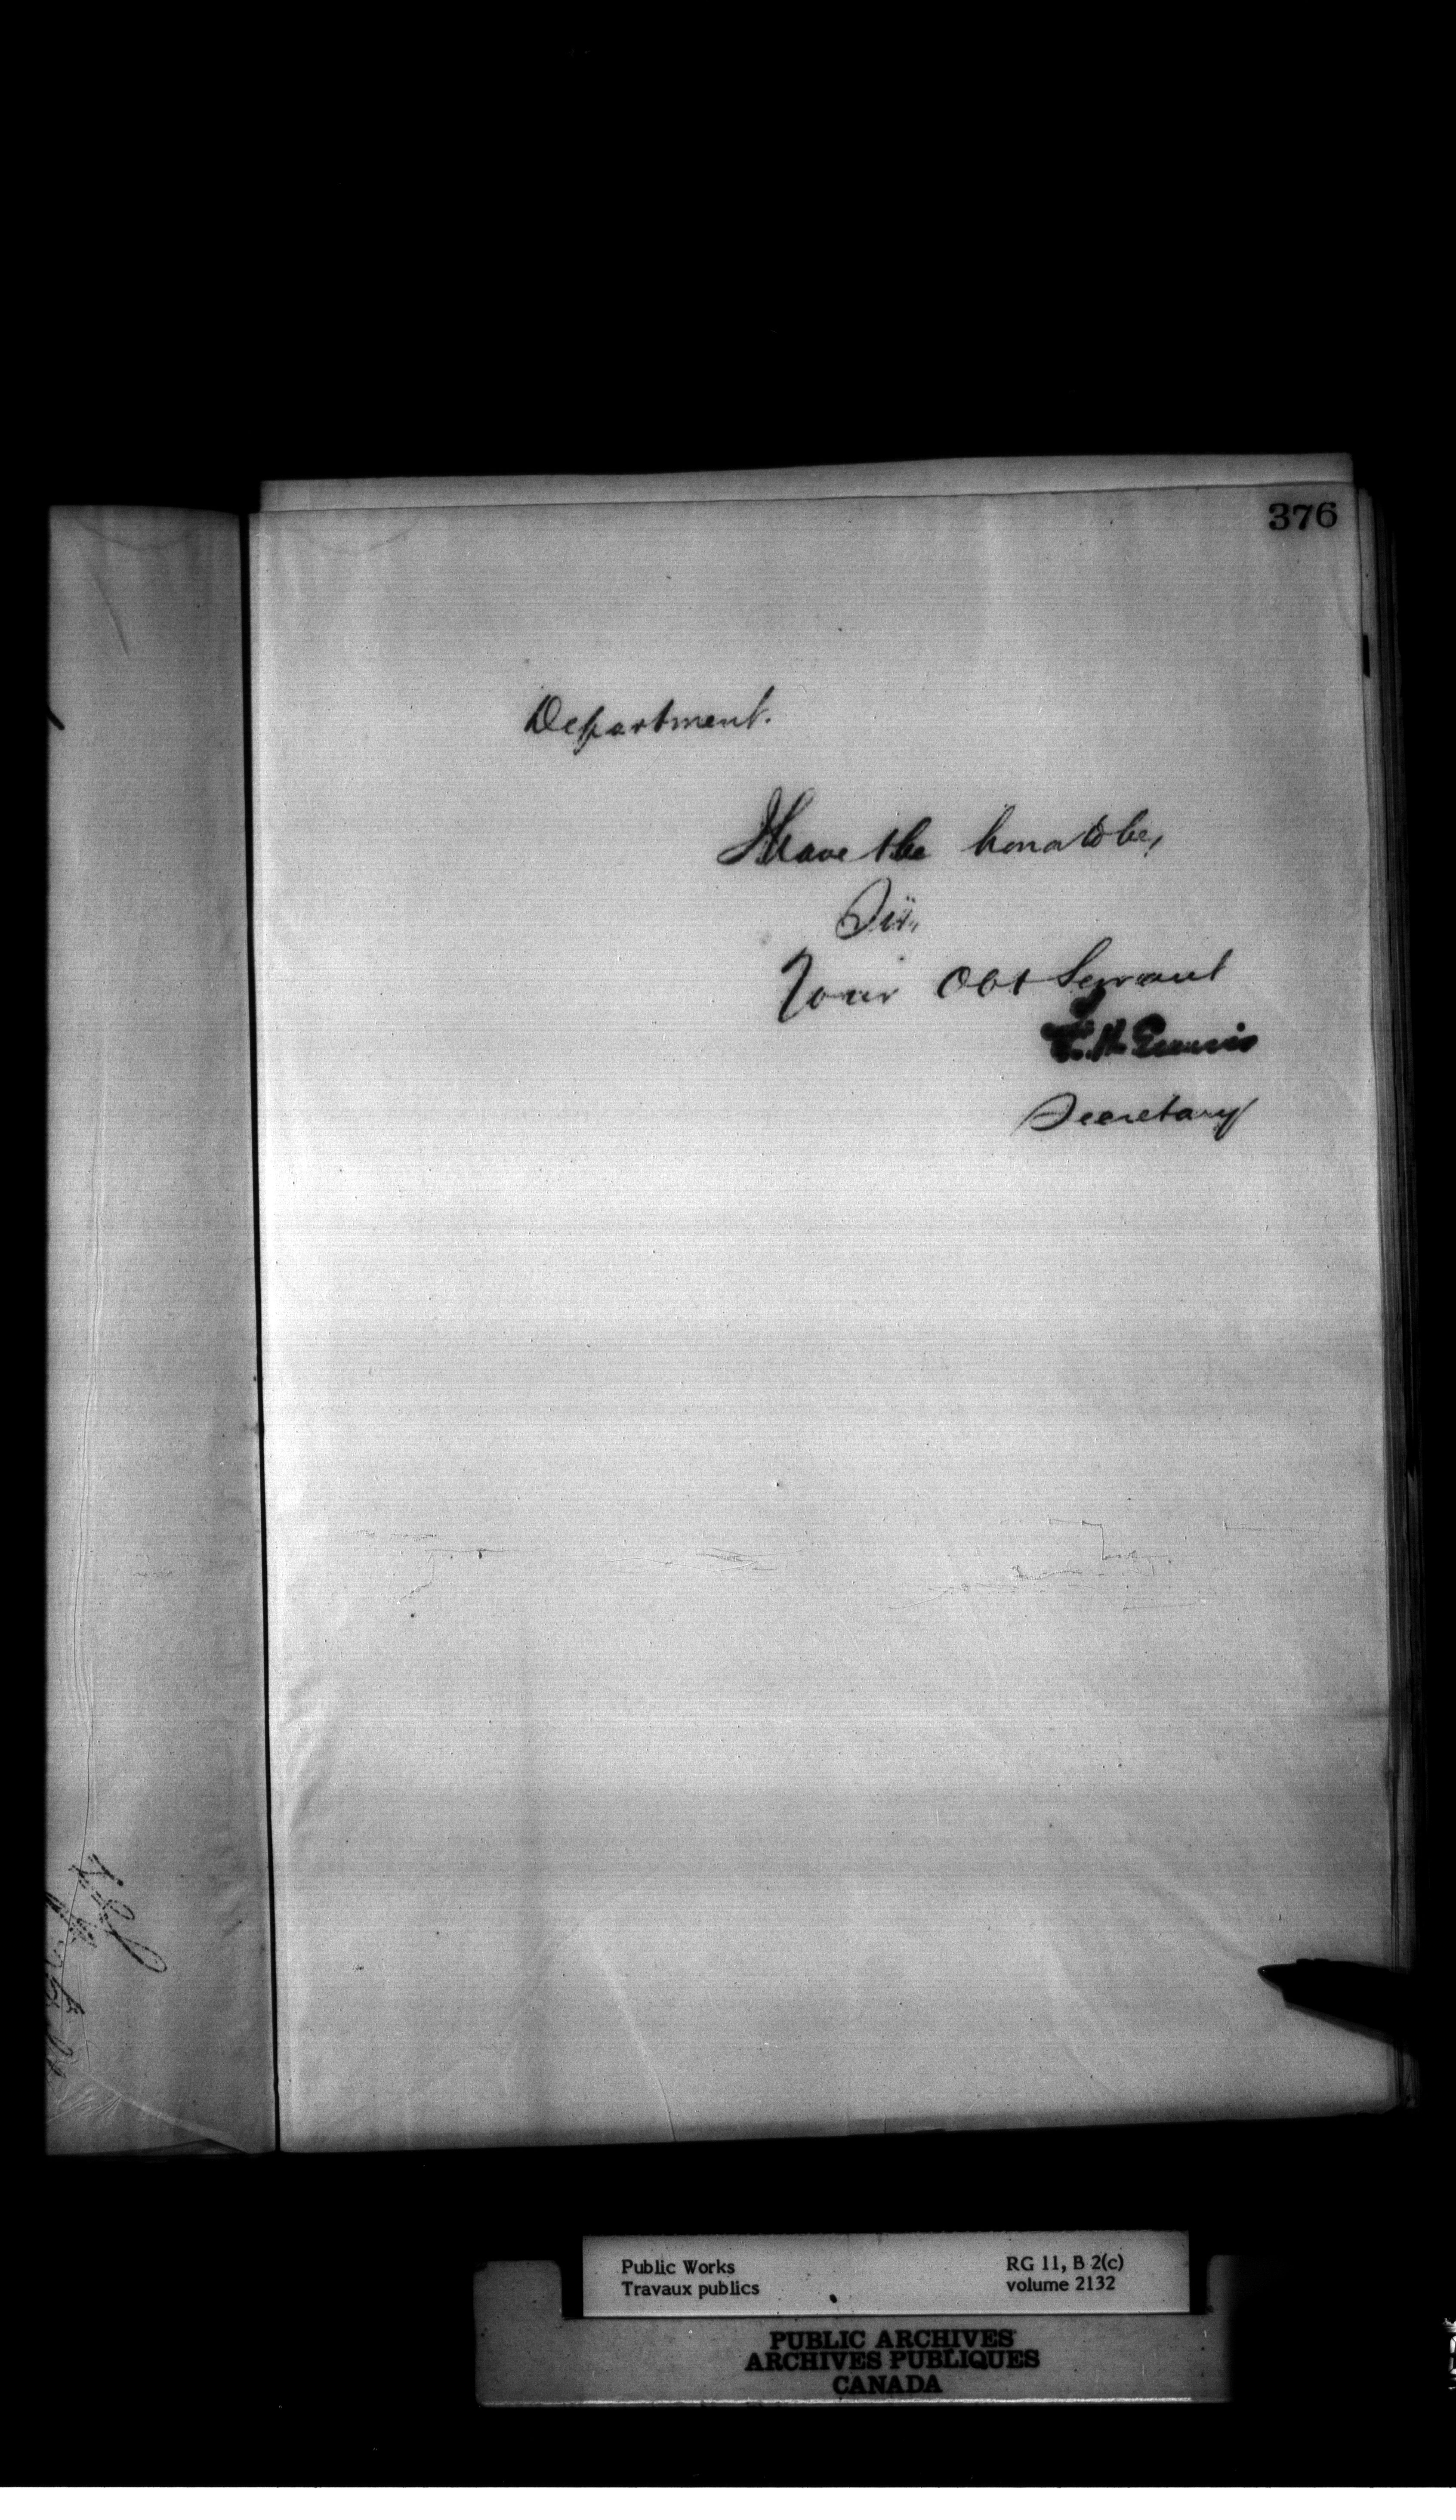 376
Department.
I have the honor to be,
Sir,
Your Obt Servant
Secretary
Public Works
Travaux publics
RG 11, B 2(c)
volume 2132
PUBLIC ARCHIVES
ARCHIVES PUBLIQUES
CANADA